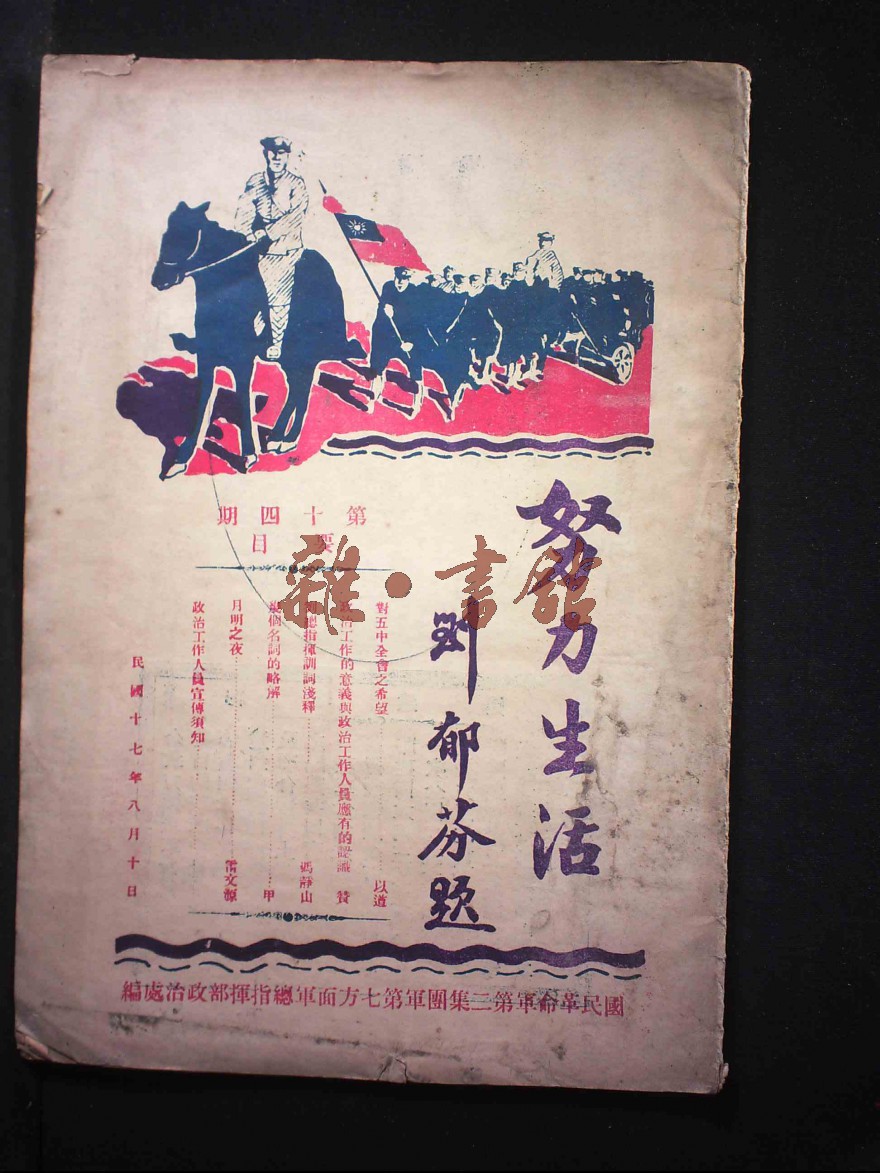 努力生活
劉郁芬題
第十四期
要目
對五中全會之希望……以道
政治工作的意義與政治工作人員應有的認識 贊
劉總指揮訓詞淺釋……馮靜山
幾個名詞的略解……甲
月明之夜……雷文源
政治工作人員宣傳須知……
民國十七年八月十日
國民革命軍第二集團軍第七方面軍總指揮部政治處編
雜·書館